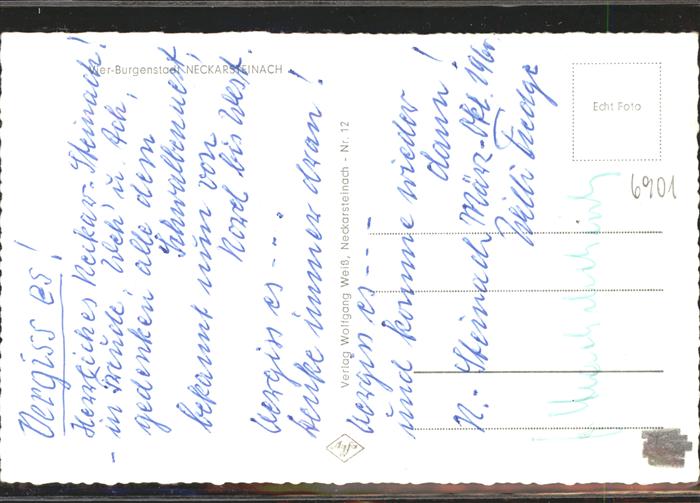 Vergiss es!
Herrliches Neckar-Steinach!
- in Freude, Weh' u. Ach,
gedenken alle dem
Schwalbennest,
bekannt nun von
Nord bis West.
Vergiss es . . . .
denke immer dran!
Vergiss es - - -
und komme wieder
dann!
N.-Steinach März-Okt. 196
Willi
Vier-Burgenstadt NECKARSTEINACH
Verlag Wolfgang Weiß, Neckarsteinach - Nr. 12
Echt Foto
6901